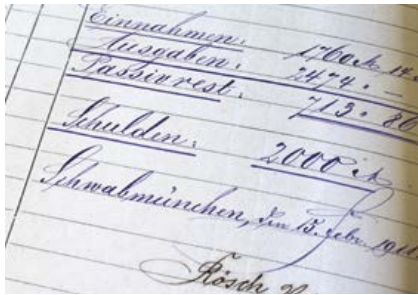 Einnahmen: 1760 M 14
Ausgaben: 2474. —
Passivrest: 713. 86
Schulden: 2000 M
Schwabmünchen, den 15. Febr. 19
Rösch